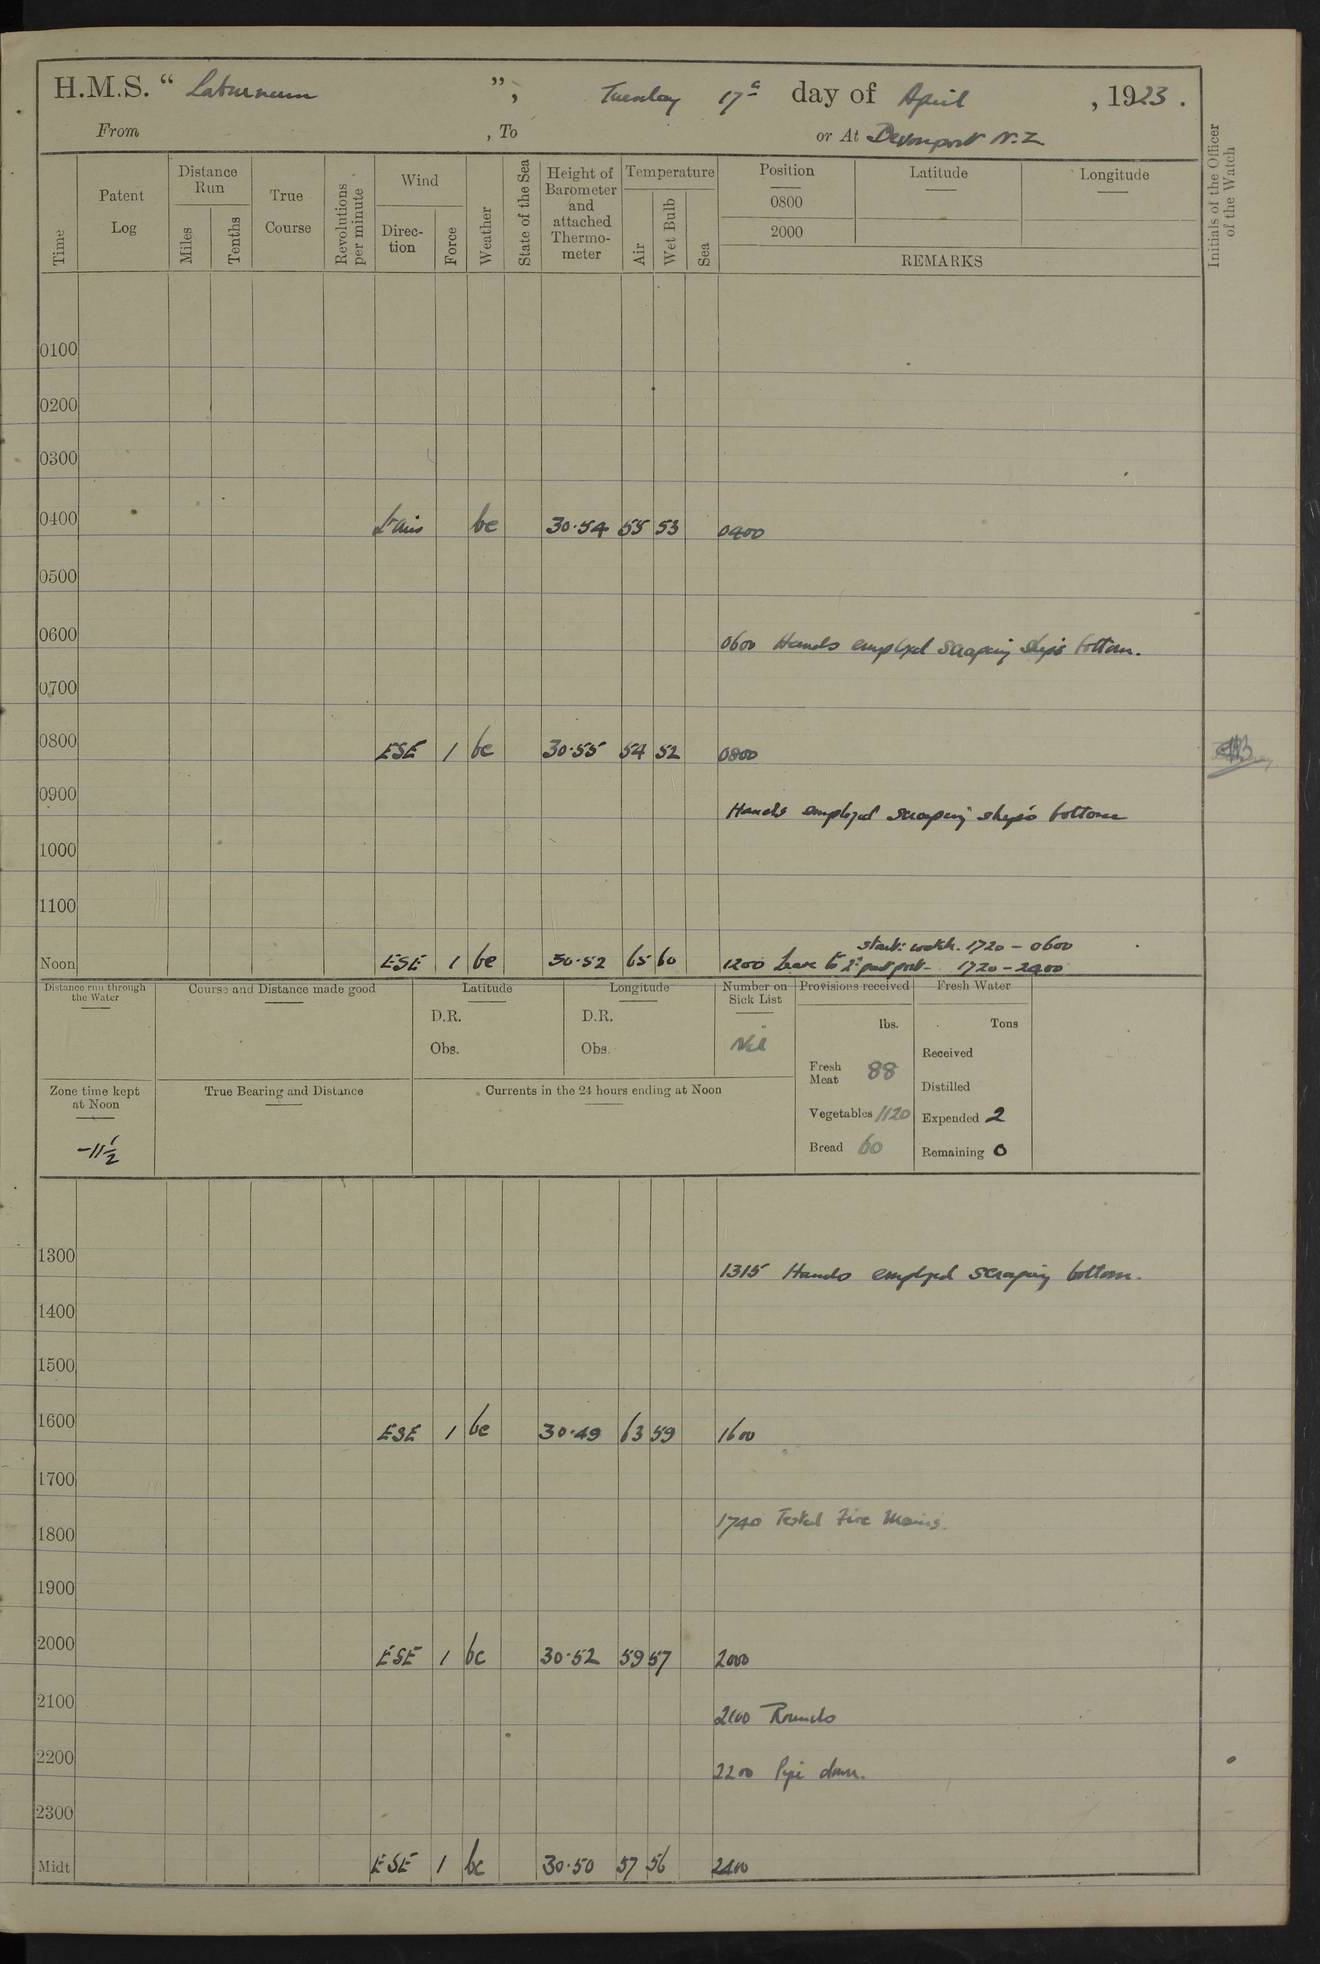 H.M.S. “ Laburnum ”, Tuesday 17th day of April , 1923 .
From , To or At Devonport N.Z
Time Patent Log Distance Run Miles Tenths True Course Revolutions per minute Wind Direc-tion Force Weather State of the Sea Height of Barometer and attached Thermo-meter Temperature Air Wet Bulb Sea Position 0800 2000 Latitude Longitude Initials of the Officer of the Watch
REMARKS
0100
0200
0300
0400 Lt airs bc 30·54 55 53 0400
0500
0600 0600 Hands employed scraping ship's bottom.
0700
0800 ESE 1 bc 30·55 54 52 0800
0900 Hands employed scraping ship's bottom
1000
1100
starb: watch. 1720 - 0600
Noon ESE 1 bc 30·52 65 60 1200 Leave to 2nd part port - 1720 - 2400
Distance run through the Water Course and Distance made good Latitude Longitude Number on Sick List Provisions received Fresh Water
D.R. D.R. lbs. Tons
Obs. Obs. Nil Received
Fresh Meat 88
Zone time kept at Noon True Bearing and Distance Currents in the 24 hours ending at Noon Distilled
Vegetables 1120 Expended 2
-11½ Bread 60 Remaining 0
1300 1315 Hands employed scraping bottom.
1400
1500
1600 ESE 1 bc 30·49 63 59 1600
1700
1800 1740 Tested Fire Mains.
1900
2000 ESE 1 bc 30·52 59 57 2000
2100 2100 Rounds
2200 2200 Pipe down.
2300
Midt ESE 1 bc 30·50 57 56 2400